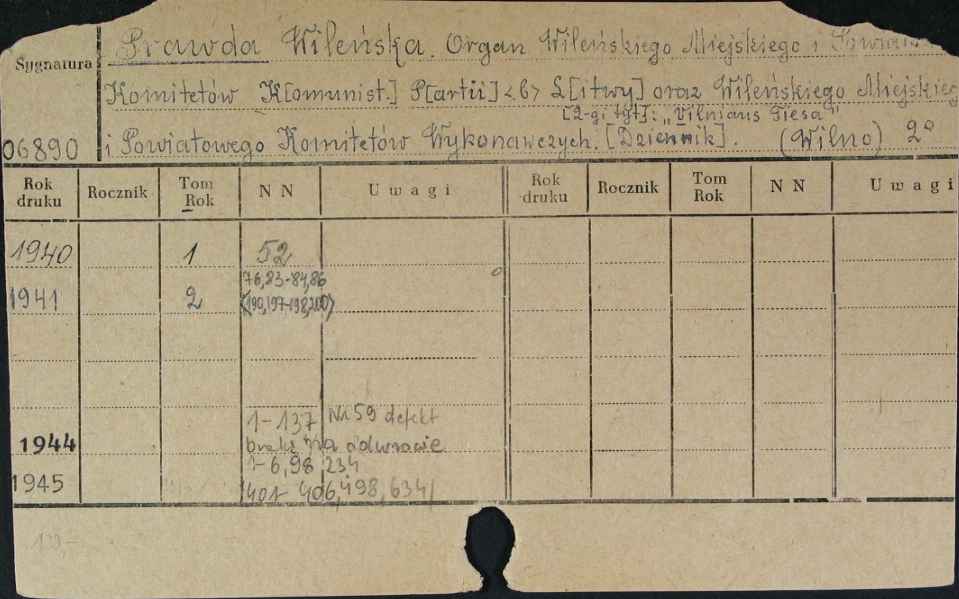 Prawda Wileńska. Organ Wileńskiego Miejskiego i
Sygnatura
Komitetów K[omunist.] P[artii] <b> L[itwy] oraz Wileńskiego Miejskieg
[2-gi tyt]: „Vilniaus Tiesa"
06890 i Powiatowego Komitetów Wykonawczych. [Dziennik]. (Wilno) 2°
Rok druku Rocznik Tom Rok N N Uwagi Rok druku Rocznik Tom Rok N N Uwagi
1940 1 52
76,83-84,86
1941 2 197-198,200
1-137 Nr 59 defekt
1944 na odwrocie
1-6,98,234
1945 401-406,498,634